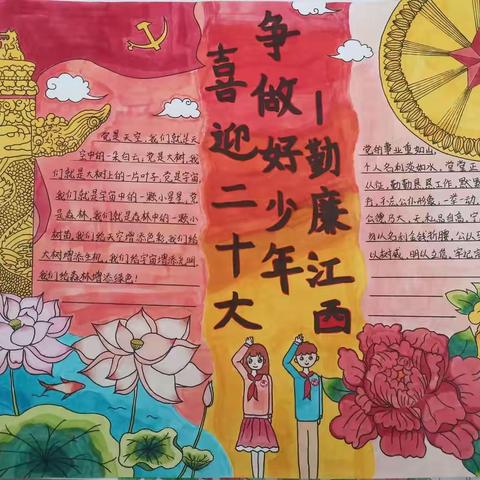 喜迎二十大
争做好少年
—勤廉江西
党是天空,我们就是天
空中的一朵白云;党是大树,我
们就是大树上的一片叶子;党是宇宙
我们就是宇宙中的一颗小星星;党
是森林,我们就是森林中的一颗小
树苗,我们给天空增添色彩,我们给
大树增添生机,我们给宇宙增添光明
我们给森林增添绿色!
党的事业重如山
个人名利淡如水,堂堂正
勤勤恳恳工作,默默
行,不忘公仆形象,一举一动
公德为大,无私品自高,宁
名利金钱折腰,公以立
以树威,明以立信,牢记宗